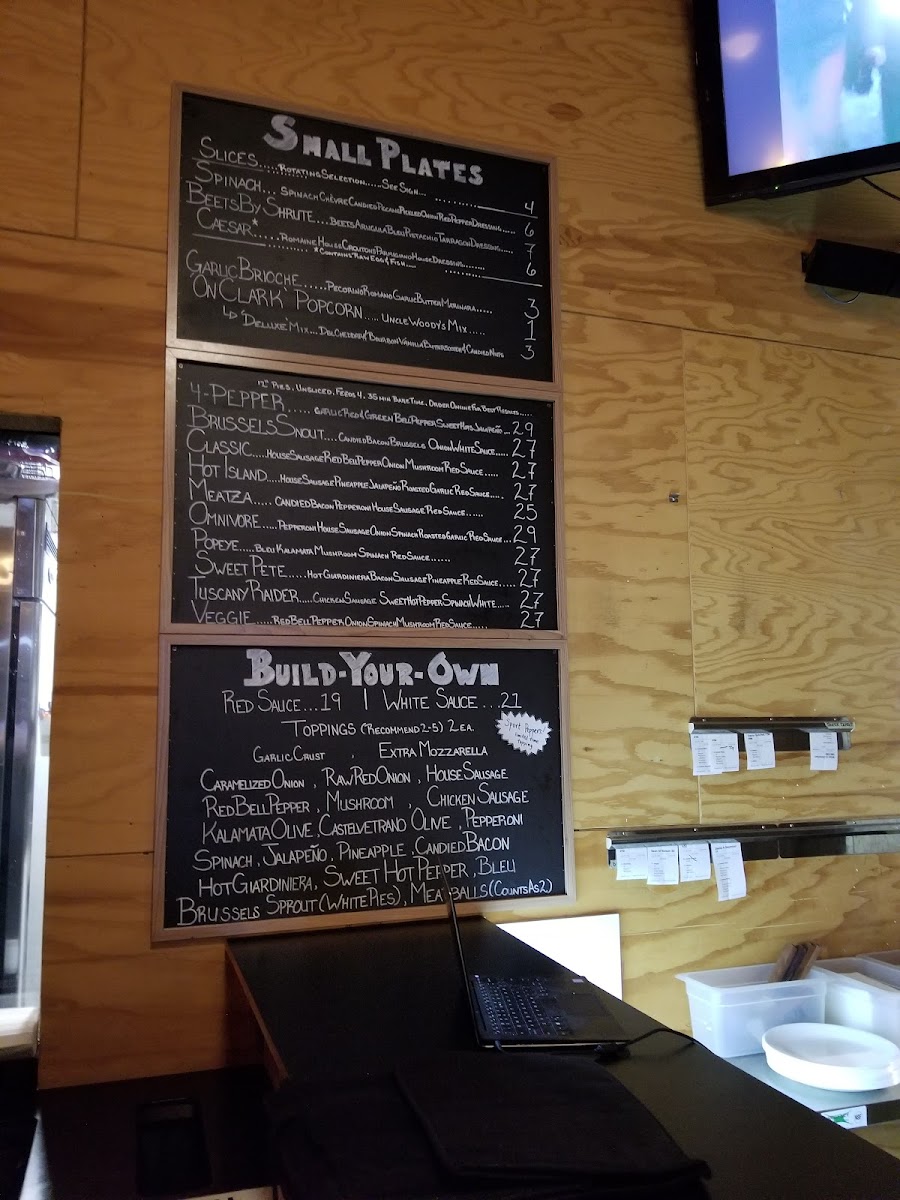 Small Plates
Slices.....Rotating Selection.....See Sign... 4
Spinach... Spinach Chèvre Candied Pecans Pickled Onion Red Pepper Dressing..... 6
Beets By Shrute....Beets Arugula Bleu Pistachio Tarragon Dressing..... 7
Caesar*.....Romaine House Croutons Parmigiano House Dressing....... 6
*Contains Raw Egg & Fish....
Garlic Brioche.....Pecorino Romano Garlic Butter Marinara..... 3
On Clark Popcorn.....Uncle Woody's Mix..... 1
↳ 'Deluxe' Mix...Dbl Cheddar & Bourbon Vanilla Butterscotch & Candied Nuts 3
12" Pies. Unsliced, Feeds 4. 35 min Bake Time. Order Online For Best Results.....
4-Pepper..... Garlic Red & Green Bell Pepper Sweet Hots Jalapeño... 29
Brussels Snout....Candied Bacon Brussels Onion White Sauce..... 27
Classic....House Sausage Red Bell Pepper Onion Mushroom Red Sauce..... 27
Hot Island....House Sausage Pineapple Jalapeño Roasted Garlic Red Sauce.... 27
Meatza..... Candied Bacon Pepperoni House Sausage Red Sauce...... 25
Omnivore.....Pepperoni House Sausage Onion Spinach Roasted Garlic Red Sauce... 29
Popeye....Bleu Kalamata Mushroom Spinach Red Sauce...... 27
Sweet Pete.....Hot Giardiniera Bacon Sausage Pineapple Red Sauce..... 27
Tuscany Raider....Chicken Sausage Sweet Hot Pepper Spinach White..... 27
Veggie.....Red Bell Pepper Onion Spinach Mushroom Red Sauce..... 27
Build-Your-Own
Red Sauce...19 | White Sauce...21
Toppings (Recommend 2-5) 2 ea.
Sport Peppers!
limited time
topping
Garlic Crust , Extra Mozzarella
Caramelized Onion , Raw Red Onion , House Sausage
Red Bell Pepper , Mushroom , Chicken Sausage
Kalamata Olive , Castelvetrano Olive , Pepperoni
Spinach , Jalapeño , Pineapple , Candied Bacon
Hot Giardiniera, Sweet Hot Pepper , Bleu
Brussels Sprout (White Pies) , Meatballs (Counts As 2)